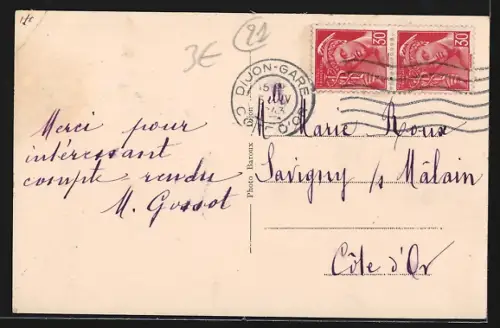 3€
21
30
30
DIJON-GARE
43
CÔTE D'OR
Merci pour
intéressant
compte rendu
M. Gossot
Photo Baroux
Dijon
M. Marie Roux
Savigny s/ Mâlain
Côte d'Or